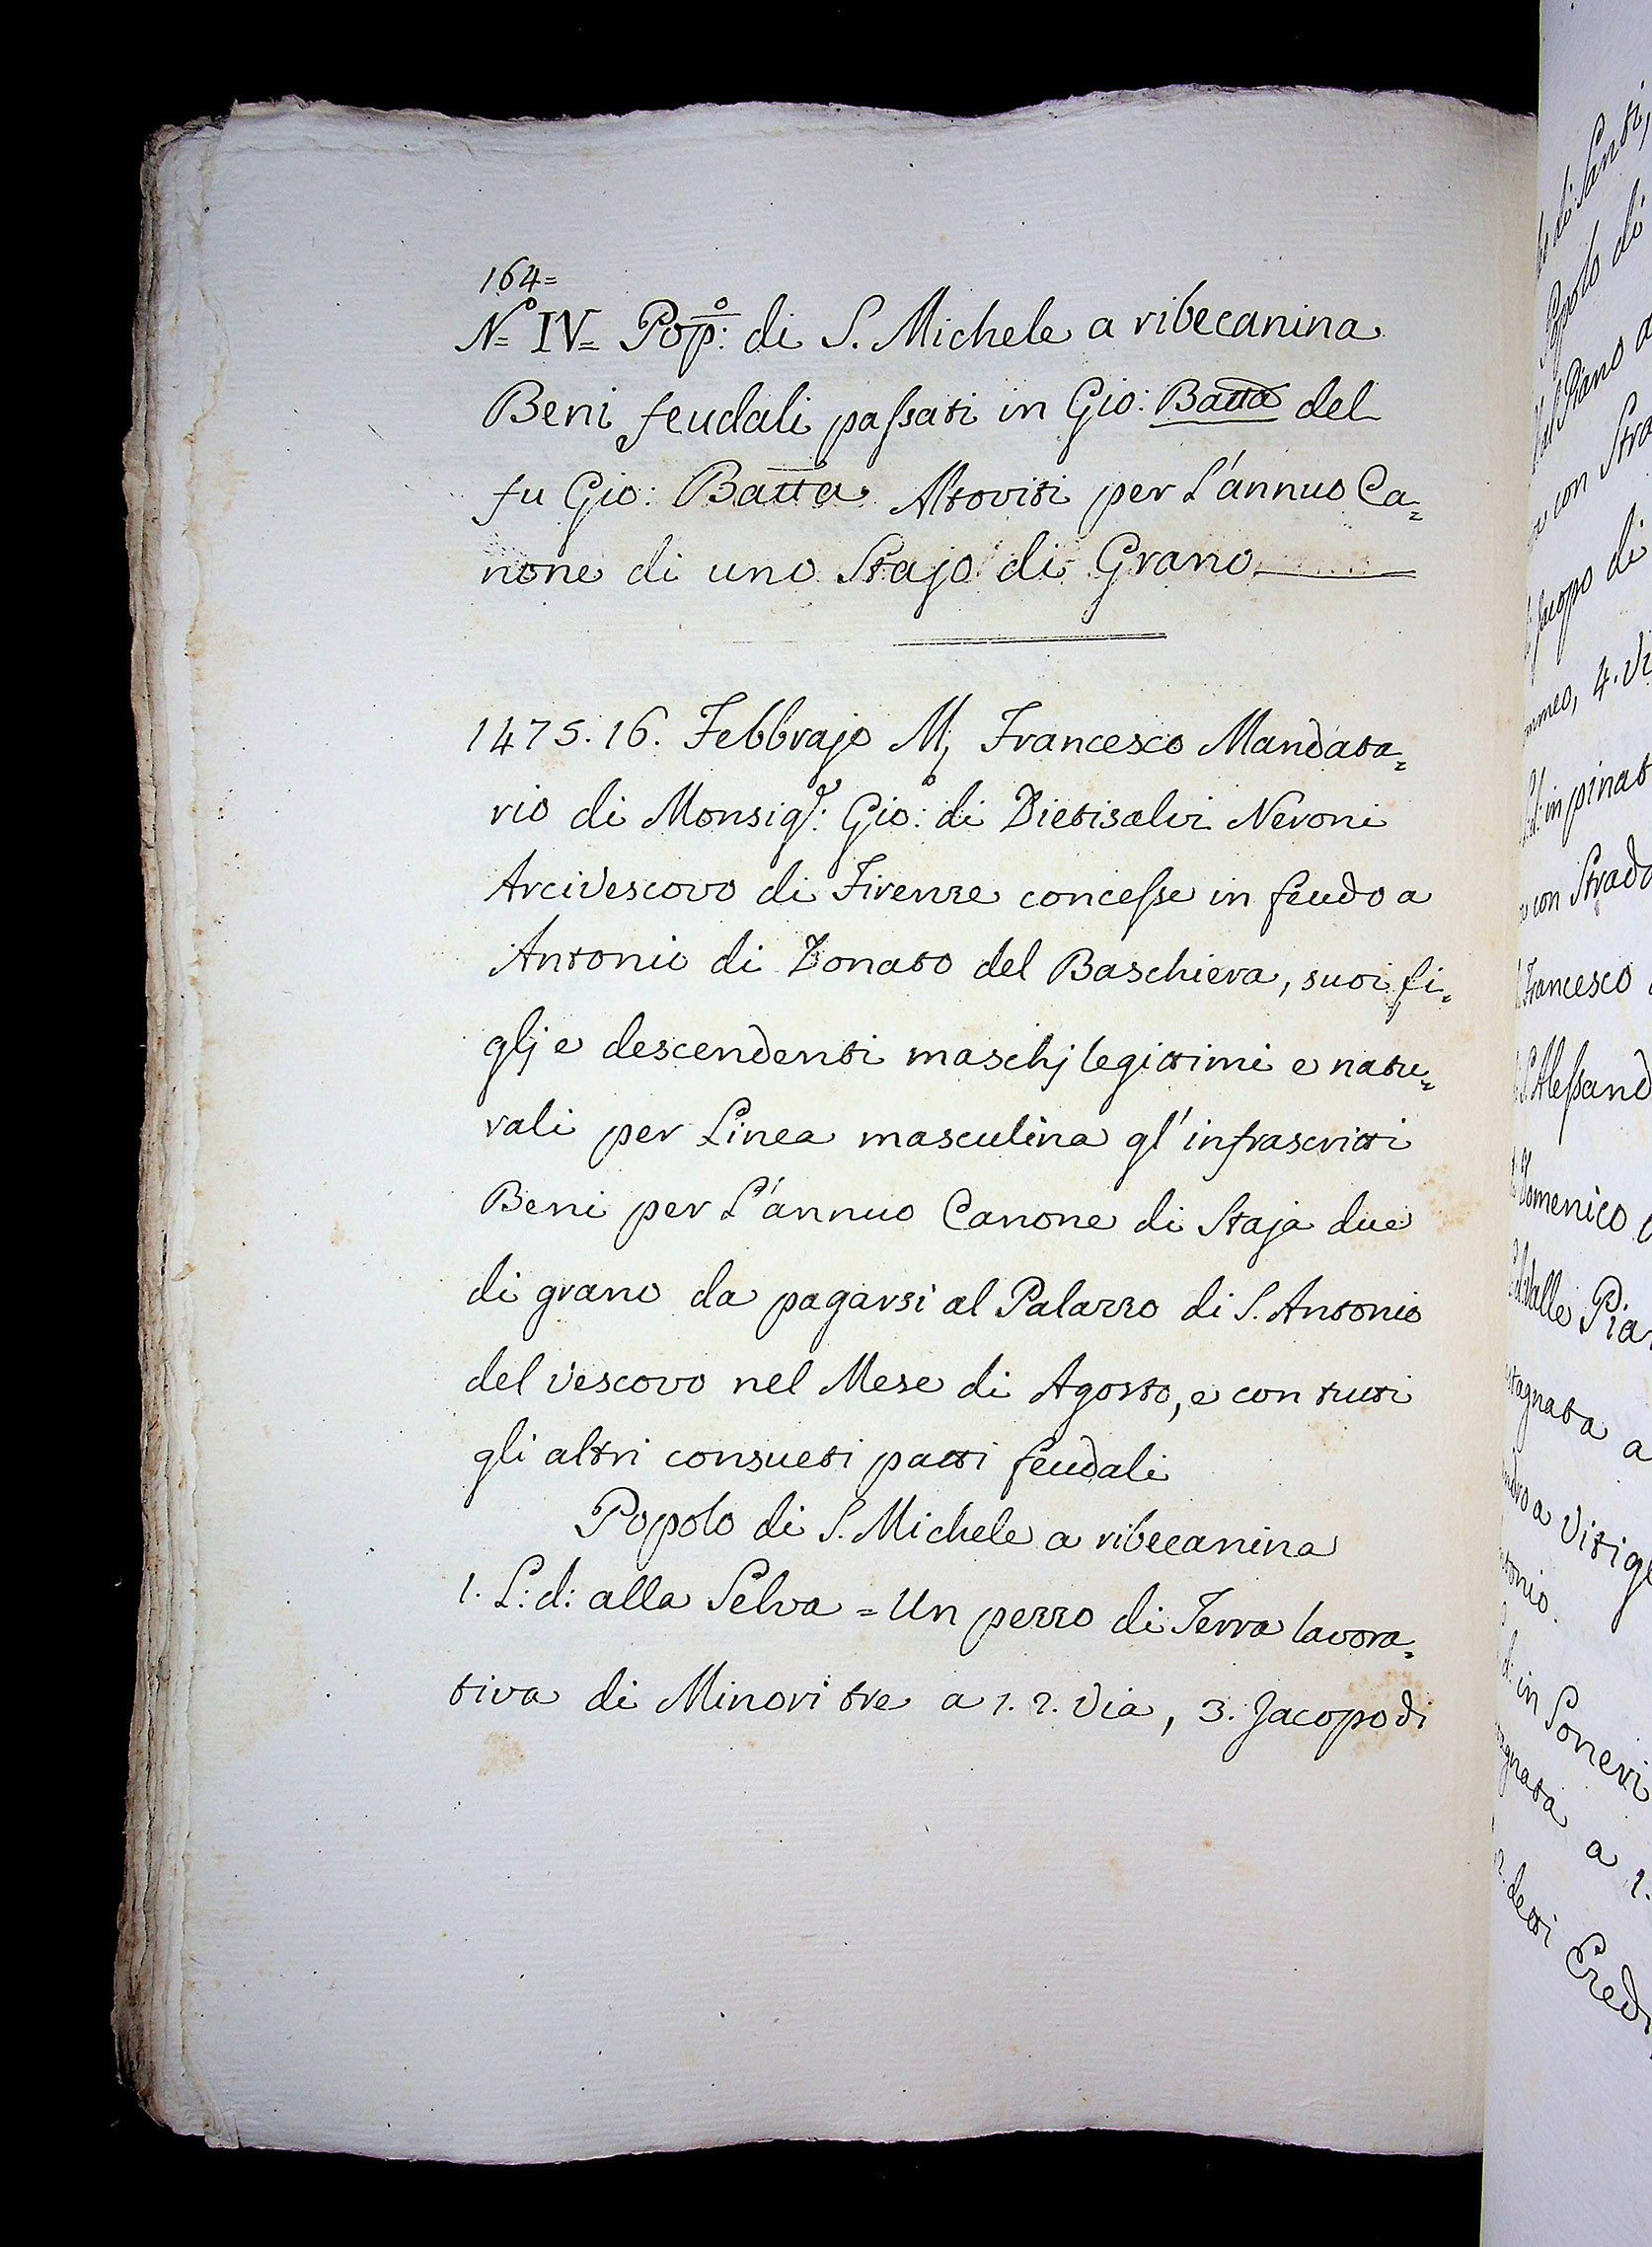 164=
N.º IV= Pop:º di S. Michele a ribecanina
Beni feudali passati in Gio: Batta del
fu Gio: Batta Altoviti per L'annuo Ca=
none di uno Stajo di Grano
1475. 16. Febbrajo M; Francesco Mandata=
rio di Monsig:r Gio: di Dietisalvi Neroni
Arcivescovo di Firenze concesse in feudo a
Antonio di Donato del Baschiera, suoi fi=
glj e descendenti maschj legittimi e natu=
rali per Linea masculina gl'infrascritti
Beni per L'annuo Canone di Staja due
di grano da pagarsi al Palazzo di S. Antonio
del Vescovo nel Mese di Agosto, e con tutti
gli altri consueti patti feudali
Popolo di S. Michele a ribecanina
1. L: d: alla Selva = Un pezzo di Terra lavora=
tiva di Minori tre a 1. 2. Via, 3. Jacopo di
di Santi,
Popolo di
Piano a
con Stra
Jacopo di
mmeo, 4. Vi
in pinat
con Strada
Francesco
S. Alessand
Domenico
Valle Pia
stagnata a
a Vitigl
tonio.
d: in Soneri
agnata a 1.
2. detti Eredi